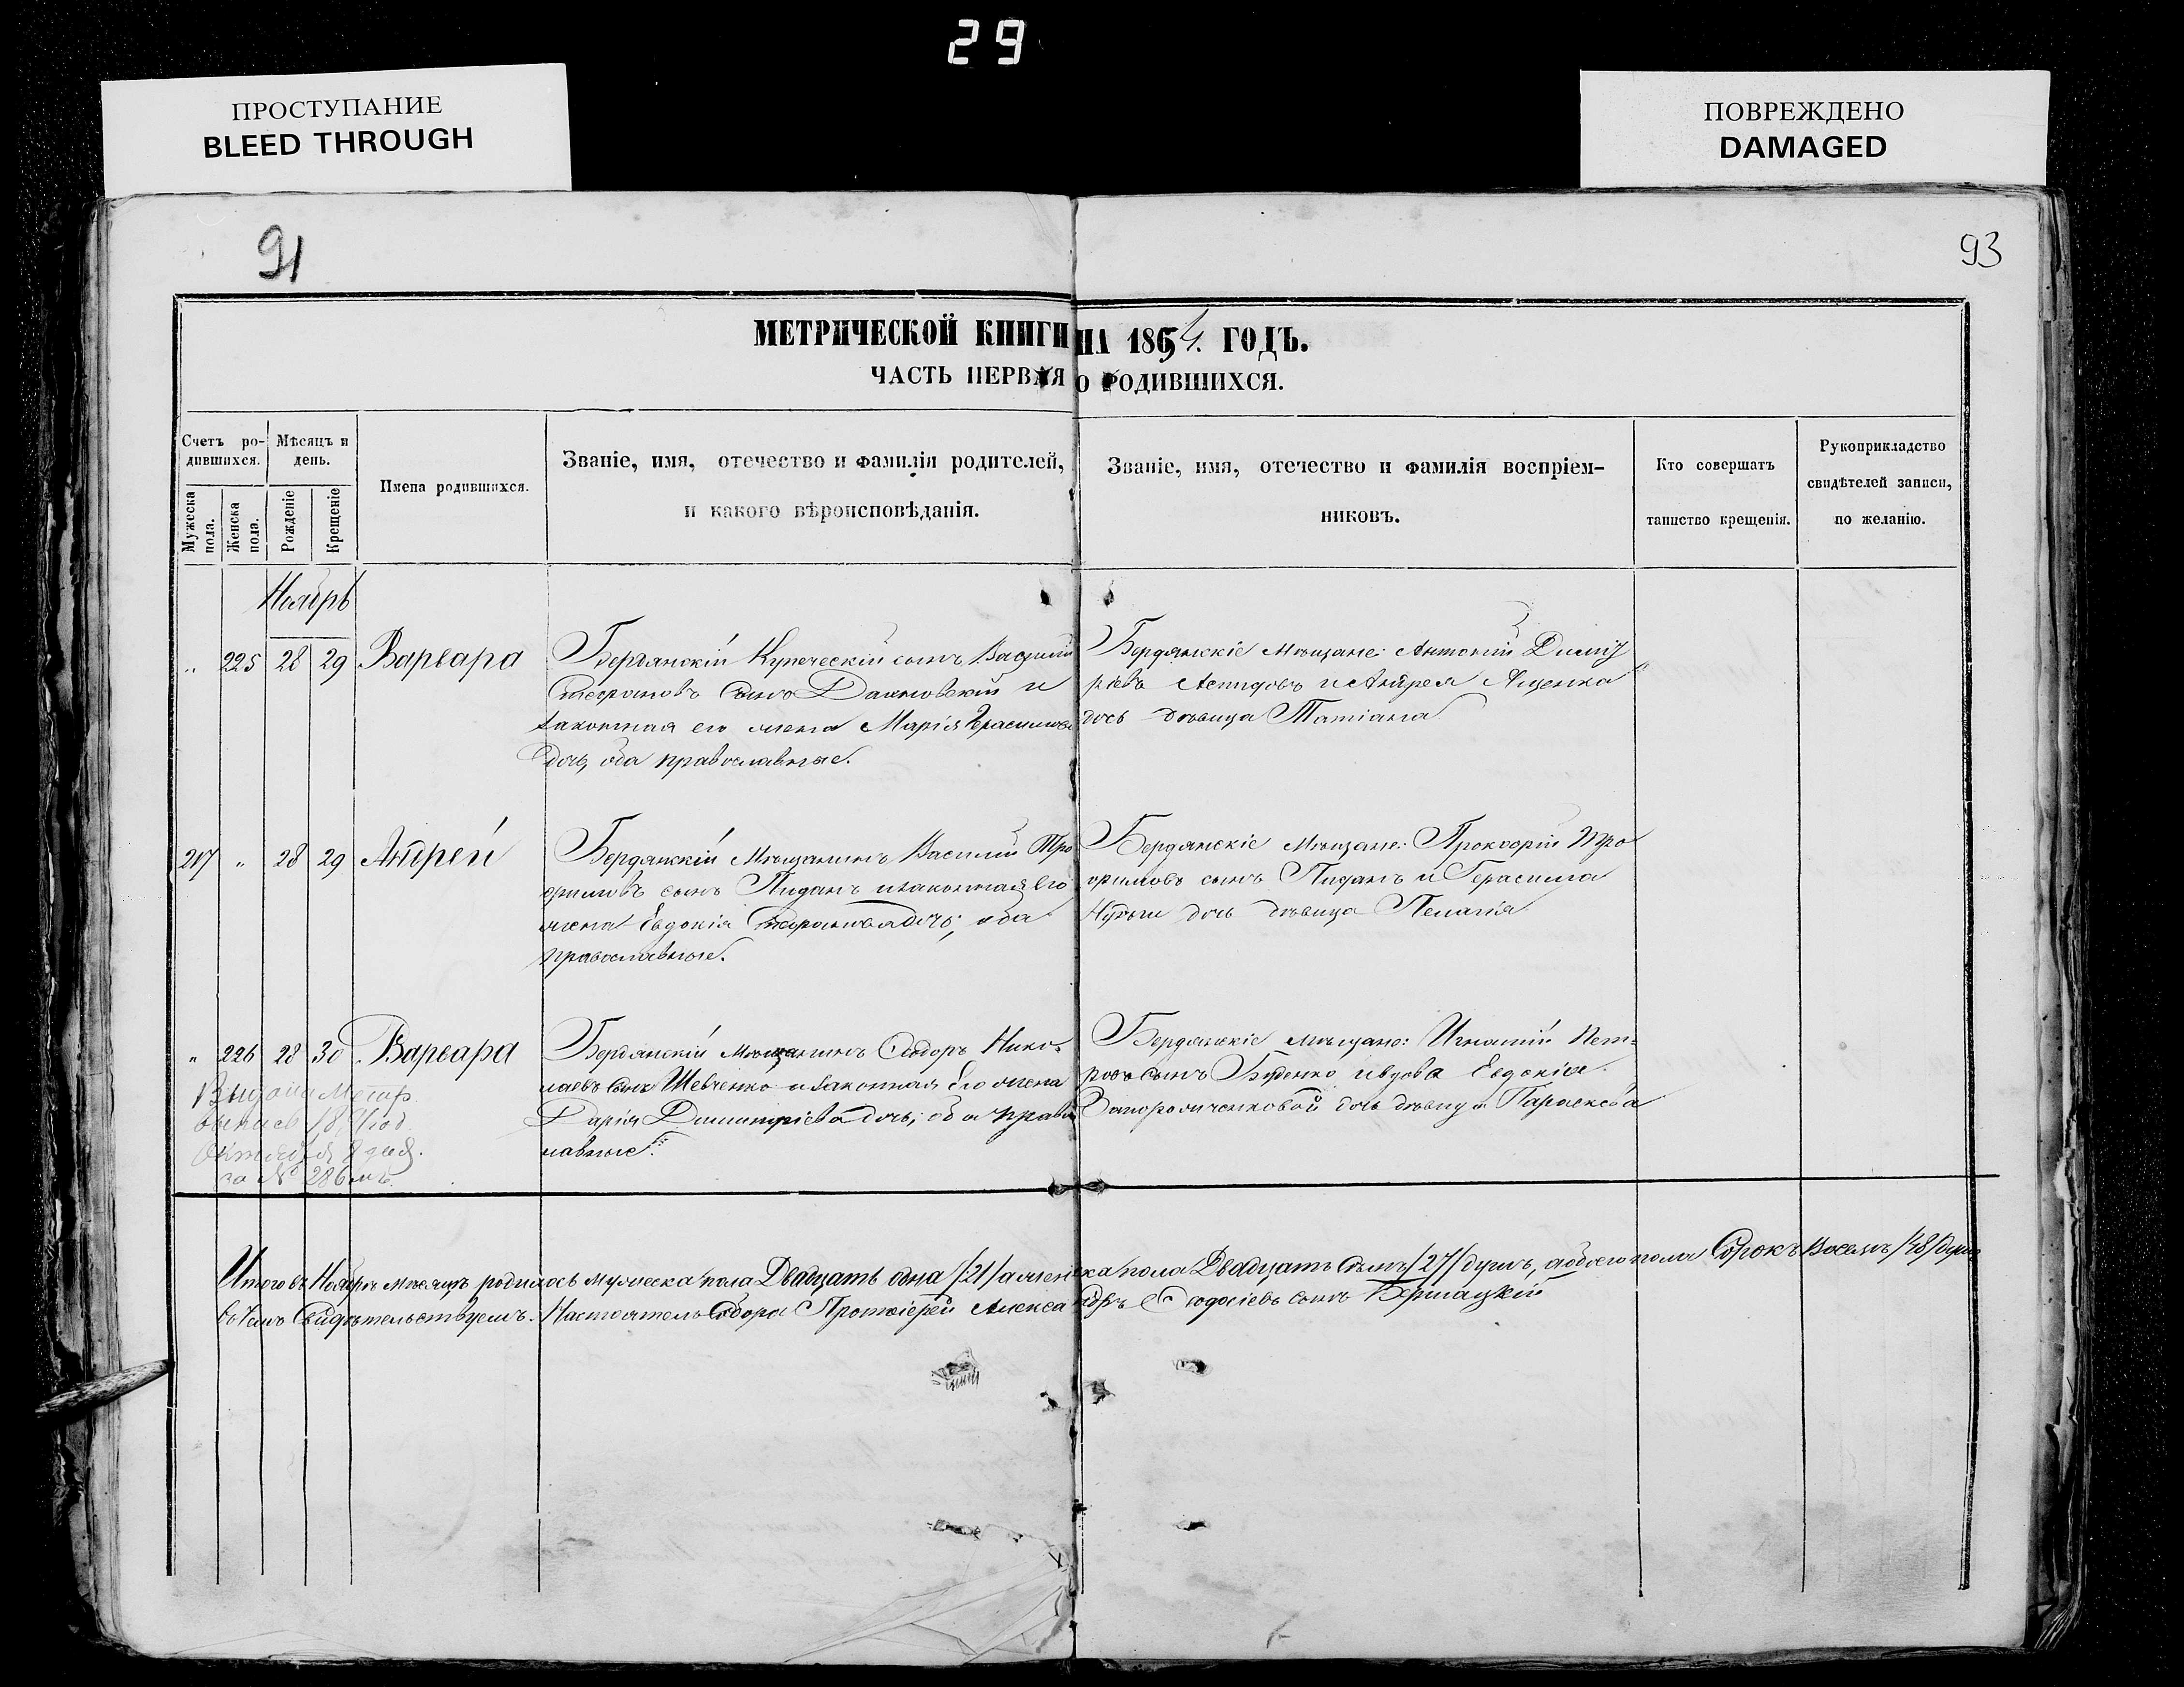 29
ПРОСТУПАНИЕ
BLEED THROUGH
ПОВРЕЖДЕНО
DAMAGED
91
93
МЕТРИЧЕСКОЙ КНИГИ НА 1864. ГОДЪ.
ЧАСТЬ ПЕРВАЯ О РОДИВШИХСЯ.
Счетъ ро-
дившихся.
Мѣсяцъ и
день.
Мужеска
пола.
Женска
пола.
Рожденіе
Крещеніе
Имена родившихся.
Званіе, имя, отечество и фамилія родителей,
и какого вѣроисповѣданія.
Званіе, имя, отечество и фамилія воспріем-
никовъ.
Кто совершатъ
таинство крещенія.
Рукоприкладство
свидѣтелей записи,
по желанію.
Ноябрь
" 225 28 29 Варвара
Бердянскій Купеческій сынъ Василій
Стефановъ сынъ и
законная его жена Марія Герасимова
дочь, оба православные.
Бердянскіе Мѣщане: Антоній Димит
ріевъ и Андрея Яценка
дочь дѣвица Татіана
207 " 28 29 Андрей
Бердянскій Мѣщанинъ Василій Тро
фимовъ сынъ Пиданъ и законная Его
жена Евдокія Стефанова дочь; оба
православные.
Бердянскіе Мѣщане: Прокофій Тро
фимовъ сынъ Пиданъ и Герасима
дочь дѣвица Пелагія
" 226 28 30 Варвара
Бердянскій Мѣщанинъ Сидоръ Нико-
лаевъ сынъ Шевченко и законная Его жена
Дарія Димитріева дочь; оба правос
лавные.
Бердянскіе мѣщане: Игнатій Пет-
ровъ сынъ Буденко и вдова Евдокія
Запорожченковой дочь дѣвица Параскева
Выдана Метр.
выпись 18 год.
Октября 8 дня.
за № 286мъ.
Итого въ Ноябрѣ мѣсяцѣ родилось мужеска пола Двадцать одна /21/ а женска пола Двадцать семь /27/ душъ, а обоего пола Сорокъ Восемь /48/ душъ
въ чемъ свидѣтельствуемъ: Настоятель Собора Протоіерей Александръ Ѳеодосіевъ сынъ Бершацкій